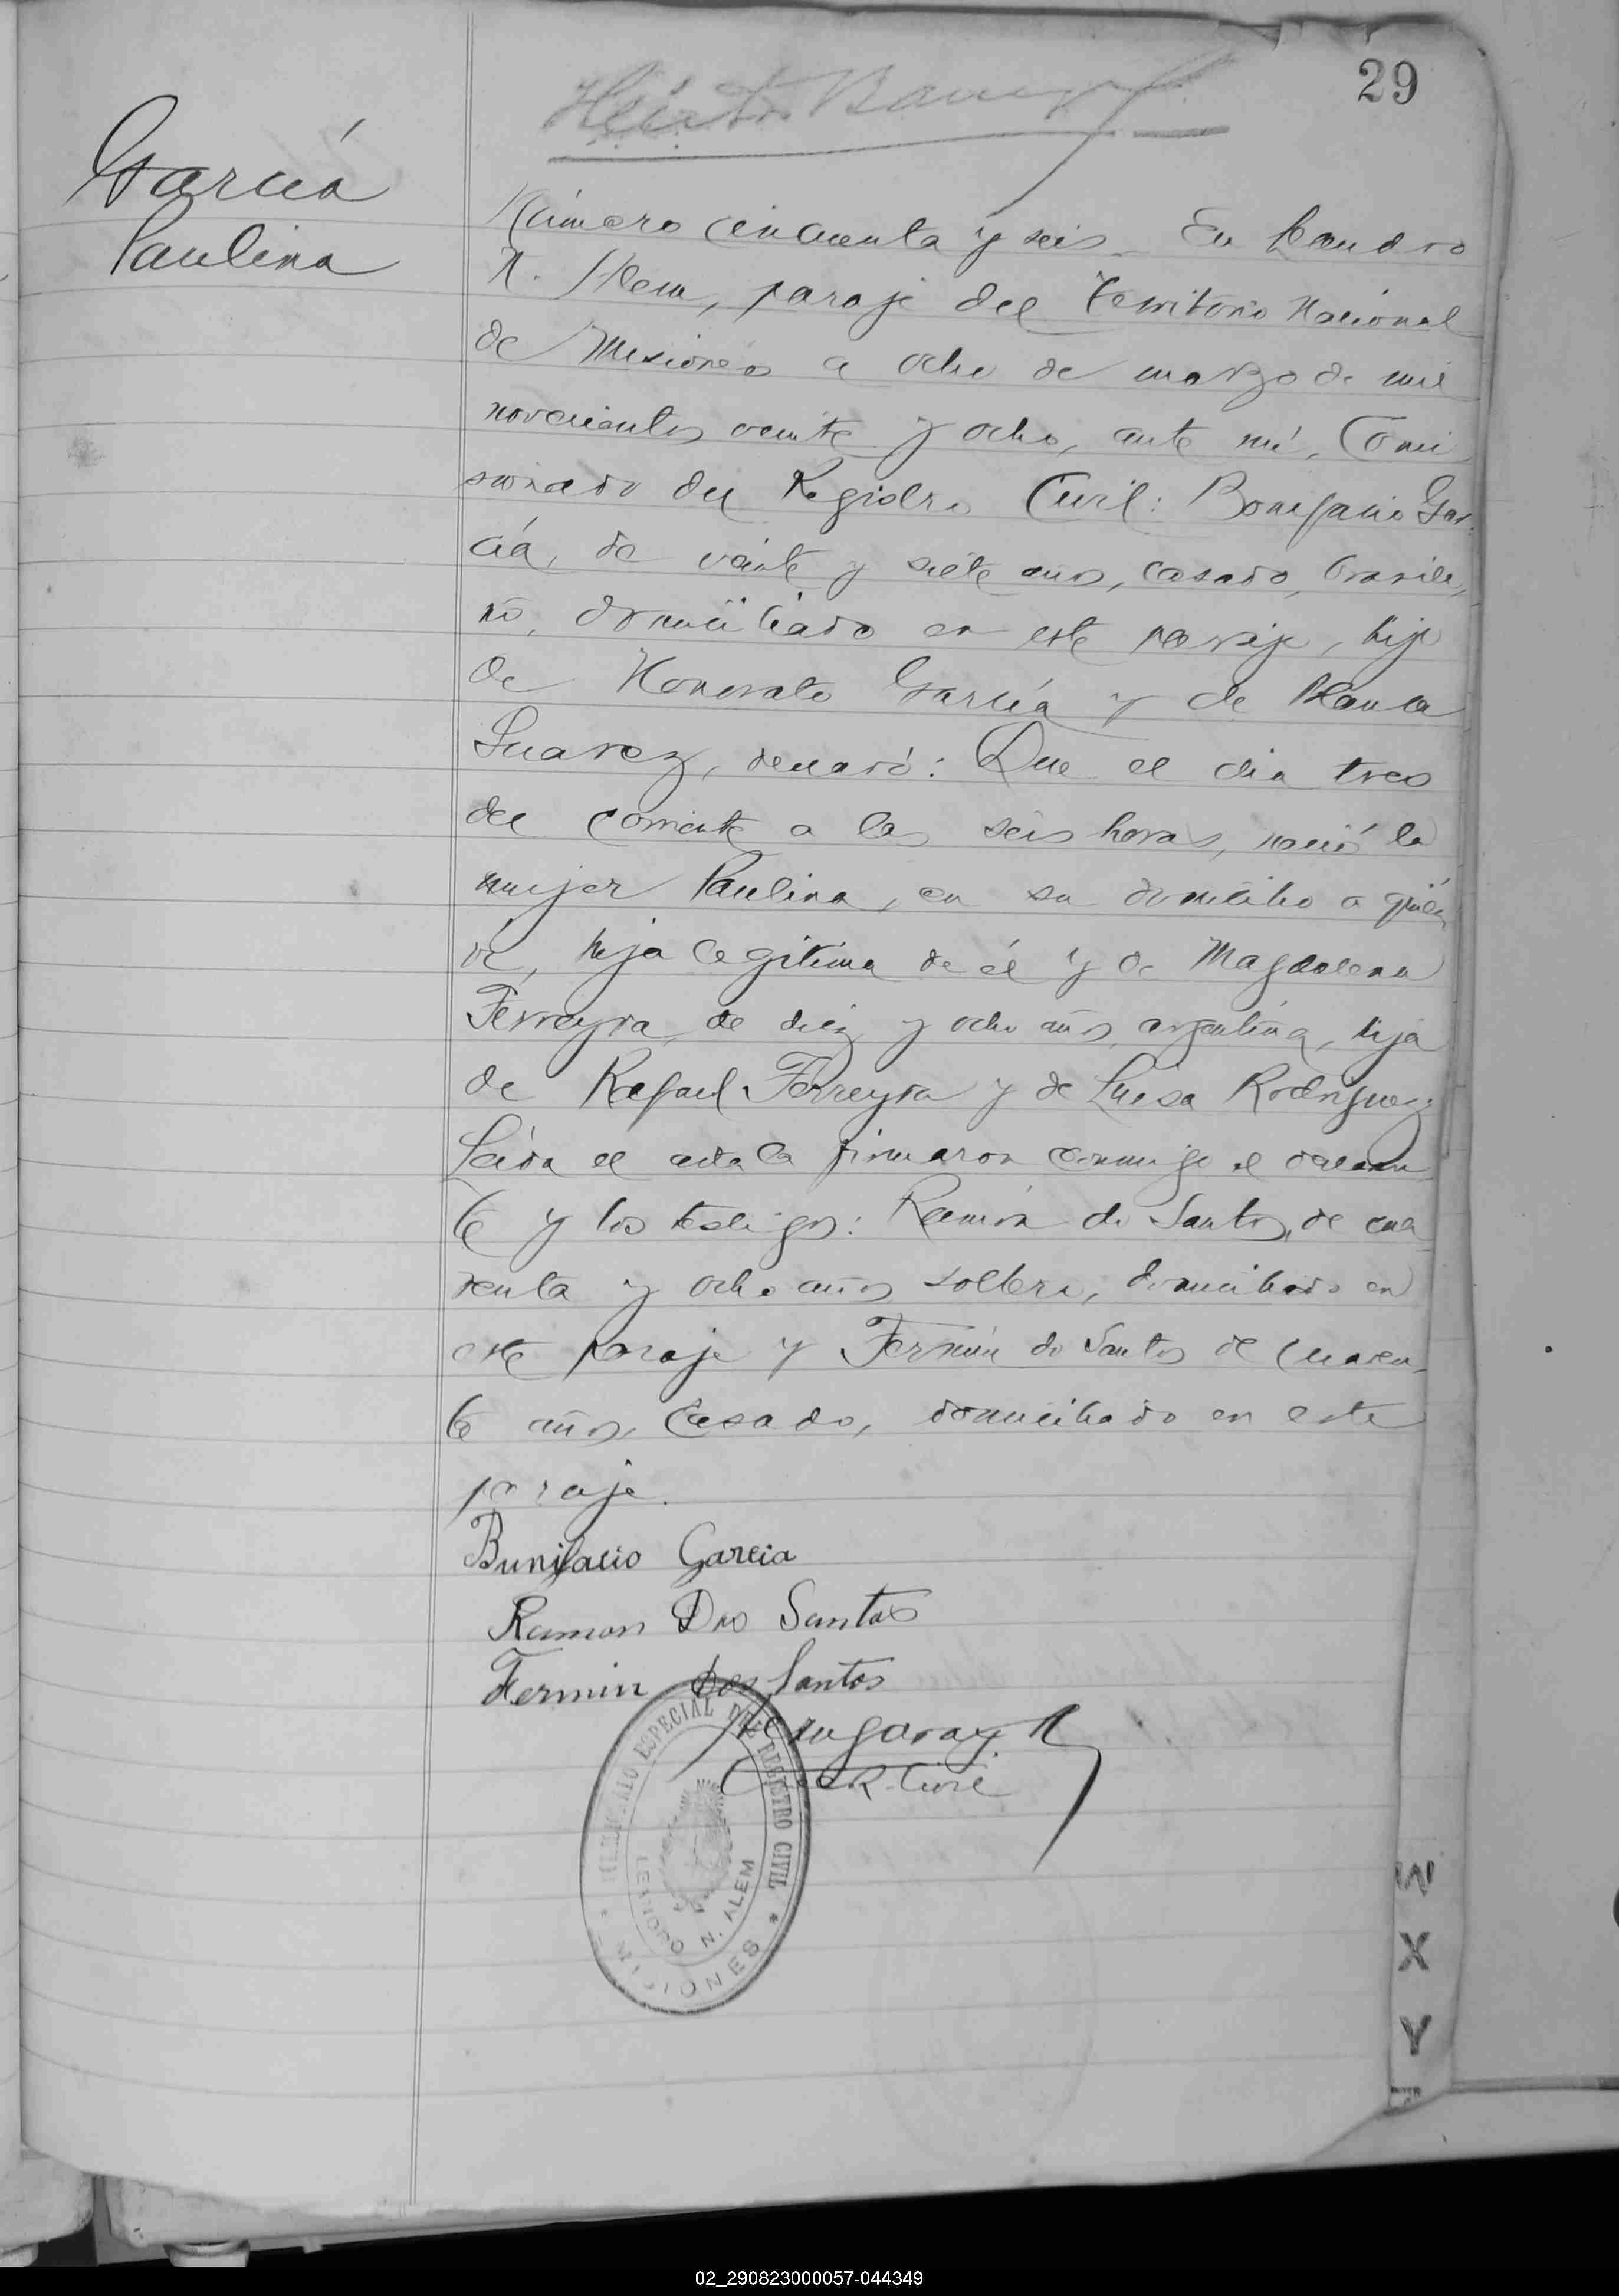 29
García
Paulina
Número cincuenta y seis. En Leandro
N. Alem, paraje del Territorio Nacional
de Misiones a ocho de marzo de mil
novecientos veinte y ocho, ante mí, Comi
sionado del Registro Civil: Bonifacio Gar
cía, de veinte y siete años, casado, brasile,
ño, domiciliado en este paraje, hijo
de Honorato García y de Blanca
Suarez, declaró: Que el dia tres
del corriente a las seis horas, nació la
mujer Paulina, en su domicilio a quién
ví, hija legítima de él y de Magdalena
Ferreyra, de diez y ocho años, argentina, hija
de Rafael Ferreyra y de Luisa Rodriguez.
Leida el acta la firmaron conmigo el declaran
te y los testigos: Ramón do Santos, de cua
renta y ocho años, soltero, domiciliado en
este paraje y Fermín do Santos de cuaren
ta años, casado, domiciliado en este
paraje.
Bunifacio Garcia
Ramon Dos Santos
Fermin Dos Santos
R. Civil
ESPECIAL DEL REGISTRO CIVIL
LEANDRO N. ALEM
* MISIONES *
W
X
Y
02_290823000057-044349